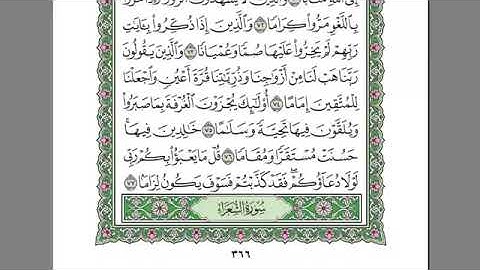 إِلَى ٱللَّهِ مَتَابًا ٧١ وَٱلَّذِينَ لَا يَشْهَدُونَ ٱلزُّورَ وَإِذَا مَرُّوا۟
بِٱللَّغْوِ مَرُّوا۟ كِرَامًا ٧٢ وَٱلَّذِينَ إِذَا ذُكِّرُوا۟ بِـَٔايَٰتِ
رَبِّهِمْ لَمْ يَخِرُّوا۟ عَلَيْهَا صُمًّا وَعُمْيَانًا ٧٣ وَٱلَّذِينَ يَقُولُونَ
رَبَّنَا هَبْ لَنَا مِنْ أَزْوَٰجِنَا وَذُرِّيَّٰتِنَا قُرَّةَ أَعْيُنٍ وَٱجْعَلْنَا
لِلْمُتَّقِينَ إِمَامًا ٧٤ أُو۟لَٰٓئِكَ يُجْزَوْنَ ٱلْغُرْفَةَ بِمَا صَبَرُوا۟
وَيُلَقَّوْنَ فِيهَا تَحِيَّةً وَسَلَٰمًا ٧٥ خَٰلِدِينَ فِيهَا ۚ
حَسُنَتْ مُسْتَقَرًّا وَمُقَامًا ٧٦ قُلْ مَا يَعْبَؤُا۟ بِكُمْ رَبِّي
لَوْلَا دُعَآؤُكُمْ ۖ فَقَدْ كَذَّبْتُمْ فَسَوْفَ يَكُونُ لِزَامًۢا ٧٧
سُورَةُ الشُّعَرَاءِ
٣٦٦